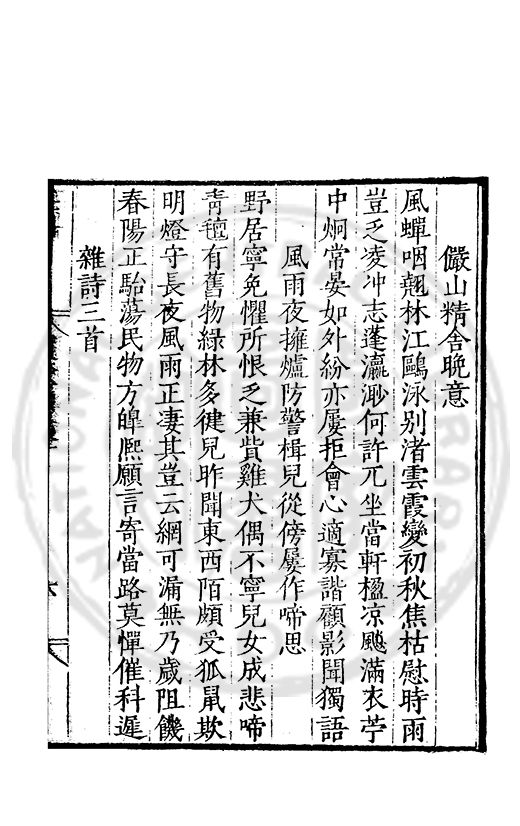 儼山精舍晩意
風蟬咽翹林江鷗泳别渚雲霞變初秋焦枯慰時雨
豈乏凌冲志蓬瀛渺何許兀坐當軒楹凉飈滿衣苧
中炯常晏如外紛亦屢拒會心適寡諧顧影聞獨語
風雨夜擁爐防警楫兒從傍屢作啼思
野居寧免懼所恨乏兼貲雞犬偶不寧兒女成悲啼
青氊有舊物綠林多徤兒昨聞東西陌頗受狐鼠欺
明燈守長夜風雨正凄其豈云網可漏無乃歲阻饑
春陽正駘蕩民物方皥熈願言寄當路莫憚催科遲
雜詩三首